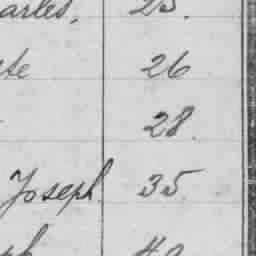 arles, 25.
te 26
28.
Joseph 35
ph 40